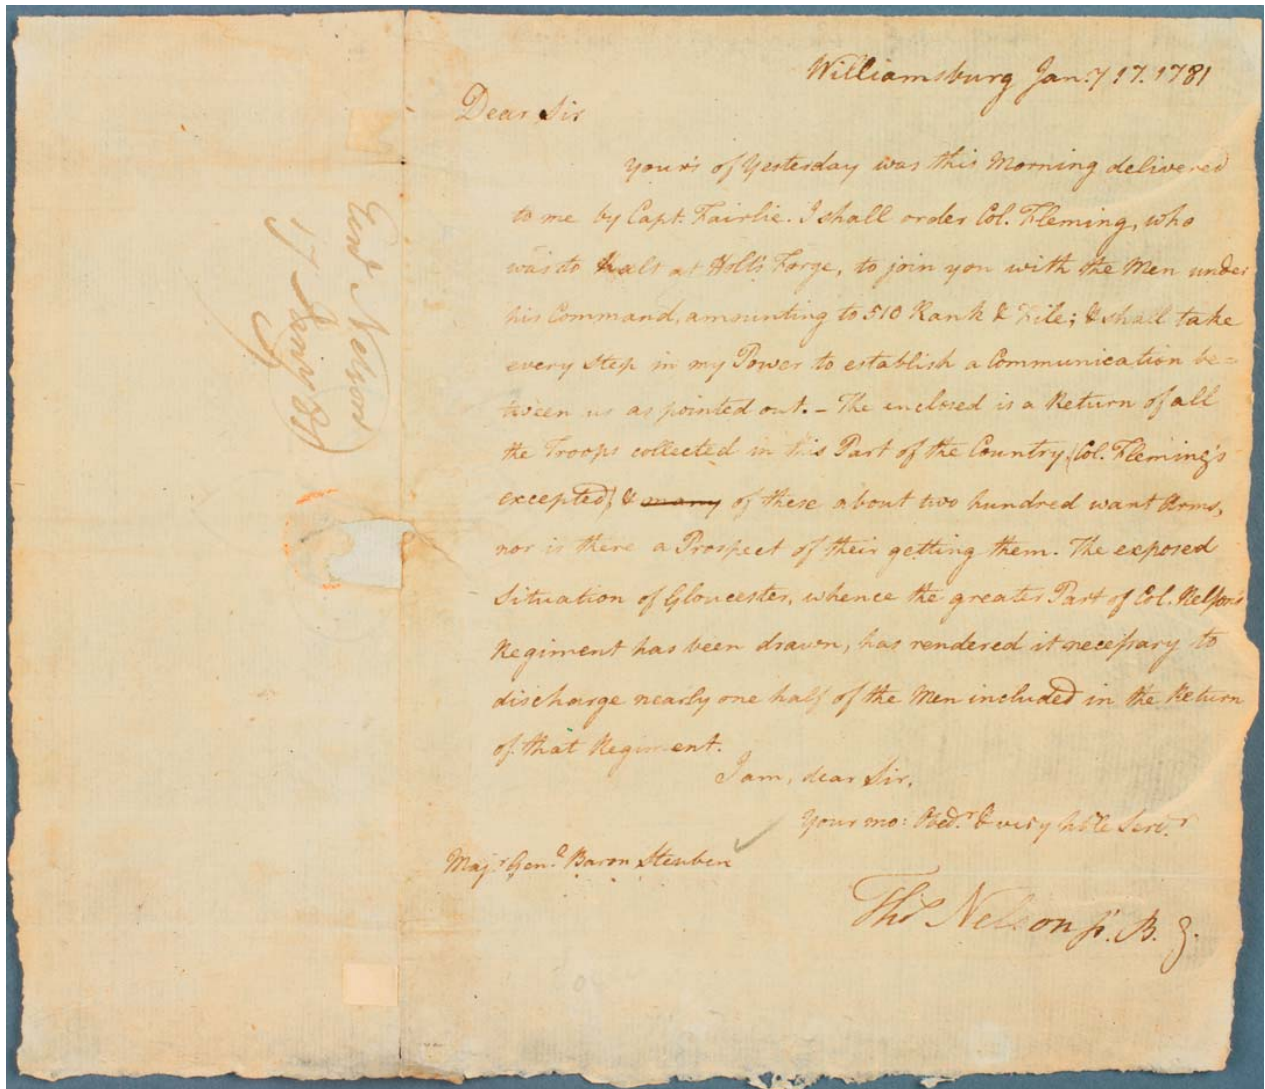 Williamsburg Jan.y 17. 1781
Dear Sir
Your's of Yesterday was this Morning delivered
to me by Capt. Fairlie. I shall order Col. Fleming, who
was to halt at Holt's Forge, to join you with the Men under
his Command, amounting to 510 Rank & File; & shall take
every Step in my Power to establish a Communication be=
tween us as pointed out. – The enclosed is a Return of all
the Troops collected in this Part of the Country (Col. Fleming's
excepted) & many of these about two hundred want Arms,
nor is there a Prospect of their getting them. The exposed
Situation of Gloucester, whence the greater Part of Col. Nelson's
Regiment has been drawn, has rendered it necessary to
discharge nearly one half of the Men included in the Return
of that Regiment.
I am, dear Sir,
Your mo: Obed.t & very hble Serv.t
Maj.r Gen.l Baron Steuben
Tho.s Nelson jr. B. G.
Genl Nelson
17 Jany 81